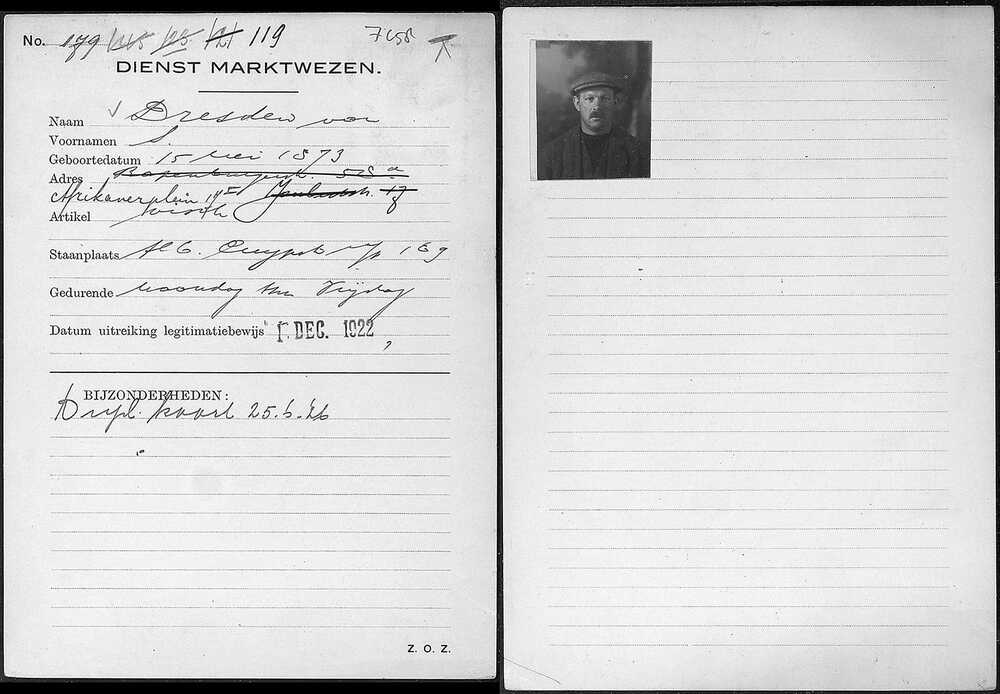 No. 179 115 128 121 119 7658
DIENST MARKTWEZEN.
Naam Dresden van
Voornamen S.
Geboortedatum 15 Mei 1873
Adres 58a
Afrikanerplein 19 I 17
Artikel visch
Staanplaats Alb. Cuypstr 169
Gedurende Maandag t/m Vrijdag
Datum uitreiking legitimatiebewijs 1 DEC. 1922
BIJZONDERHEDEN:
Dupl. kaart 25.6.26
Z. O. Z.